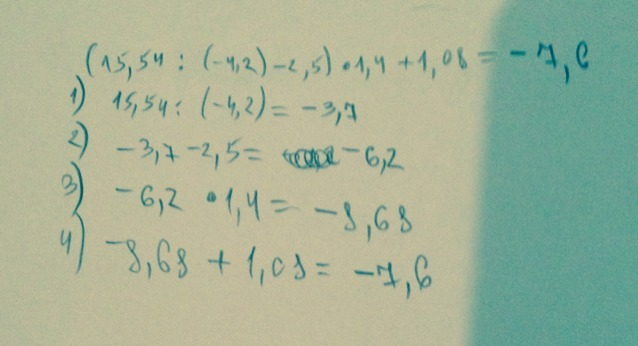 (15,54 : (-4,2) -2,5) • 1,4 + 1,08 = -7,6
1) 15,54 : (-4,2) = -3,7
2) -3,7 -2,5 = -6,2
3) -6,2 • 1,4 = -8,68
4) -8,68 + 1,08 = -7,6